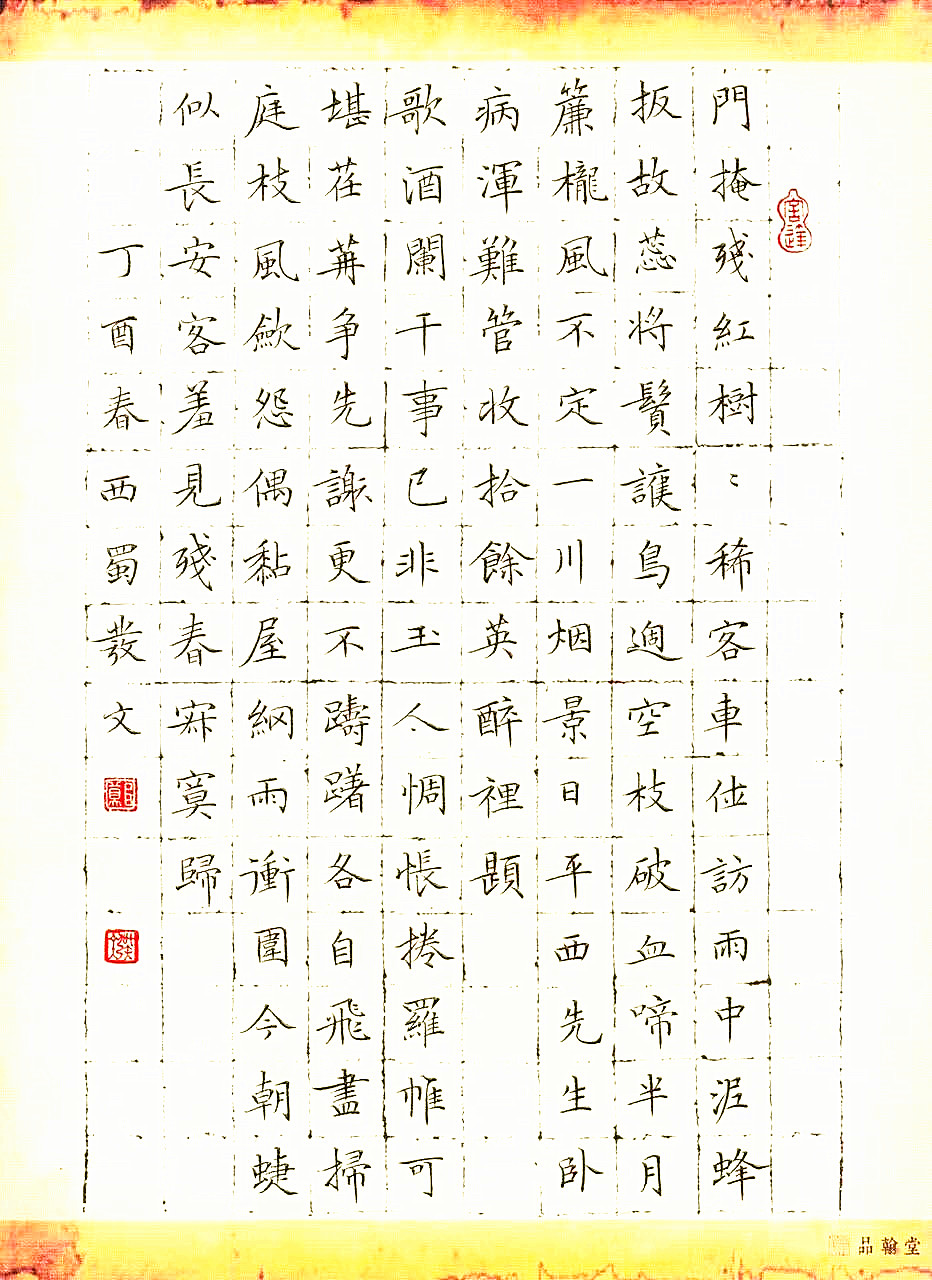 門掩殘紅樹〻稀客車訪雨中泥蜂
扳故蕊將鬢護鳥過空枝破血啼半月
簾櫳風不定一川烟景日平西先生卧
病渾難管收拾餘英醉裡題
歌酒闌干事已非玉人惆悵捲羅帷可
堪荏苒争先謝更不躊躇各自飛盡掃
庭枝風歛怨偶黏屋網雨衝圍今朝蜨
似長安客羞見殘春寂寞歸
丁酉春西蜀發文
品翰堂